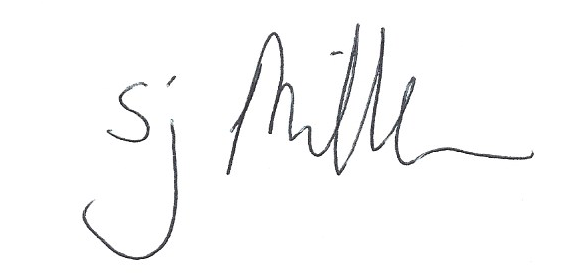 sj Miller